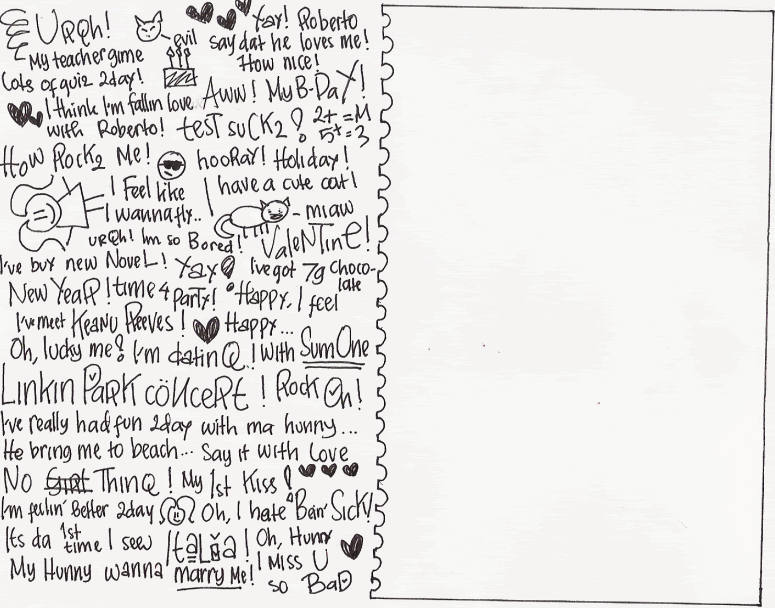 URQh! evil Yay! Roberto
My teacher gime say dat he loves me!
Lots of quiz 2day! How nice!
I think I'm fallin love Aww! My B-DaY!
with Roberto! tesT suCK2! 2+ =M
5+ = 3
How Rock2 Me! hooRAY! Holiday!
I Feel like I have a cute cat!
I wanna fly.. - miaw
URQh! Im so Bored! ValeNTinE!
I've buy new NoveL! Yay! I've got 7g Choco-
late
New YeaR! time 4 paRTy! Happy, I feel
I've meet KeaNU ReeveS! Happy...
Oh, lucky me? I'm datinQ! With SumOne
LinKin PaRK cönceRt! Rock On!
I've really had fun 2day with ma hunny...
He bring me to beach... Say it with Love
No ThinQ! My 1st Kiss!
I'm feelin' Better 2day Oh, I hate Bein' SicK!
Its da 1st time I see Italia! Oh, Hunny
My Hunny wanna marry Me! I MisS U
so BaD